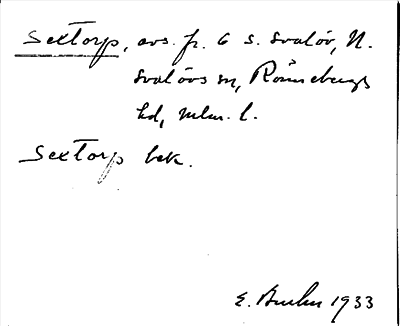 Sextorp, avs. fr. 6 S. Svalöv, N.
Svalövs sn, Rönnebergs
hd, Mlm. l.
Sextorp bek.
E. 1933